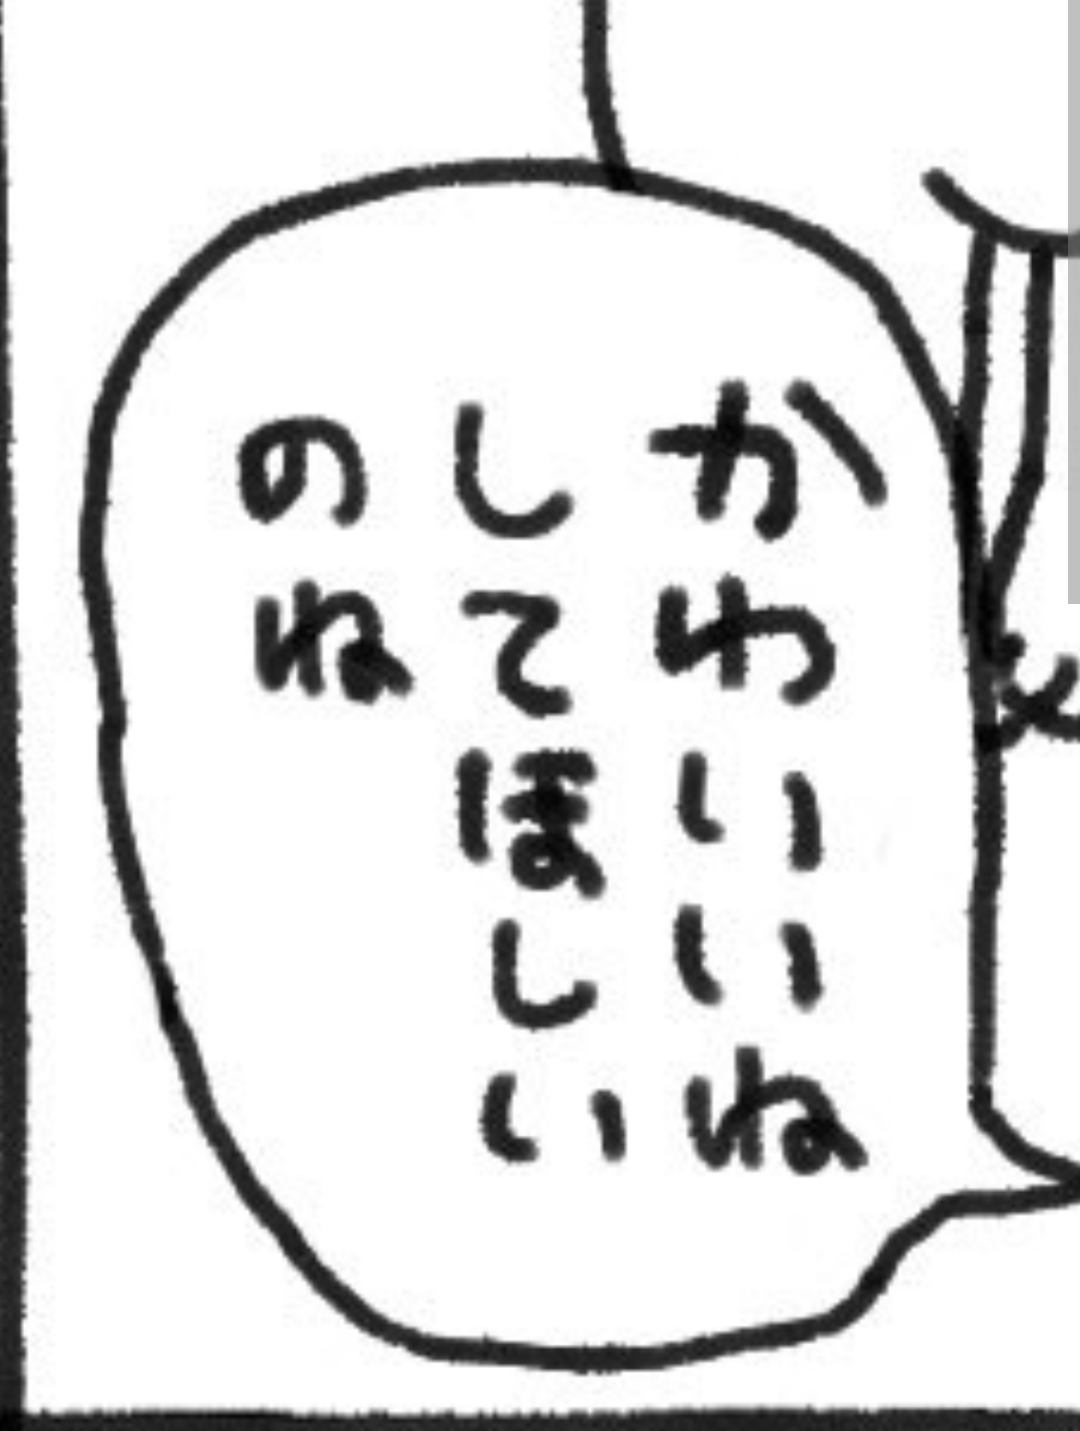 かわいいね
してほしい
のね